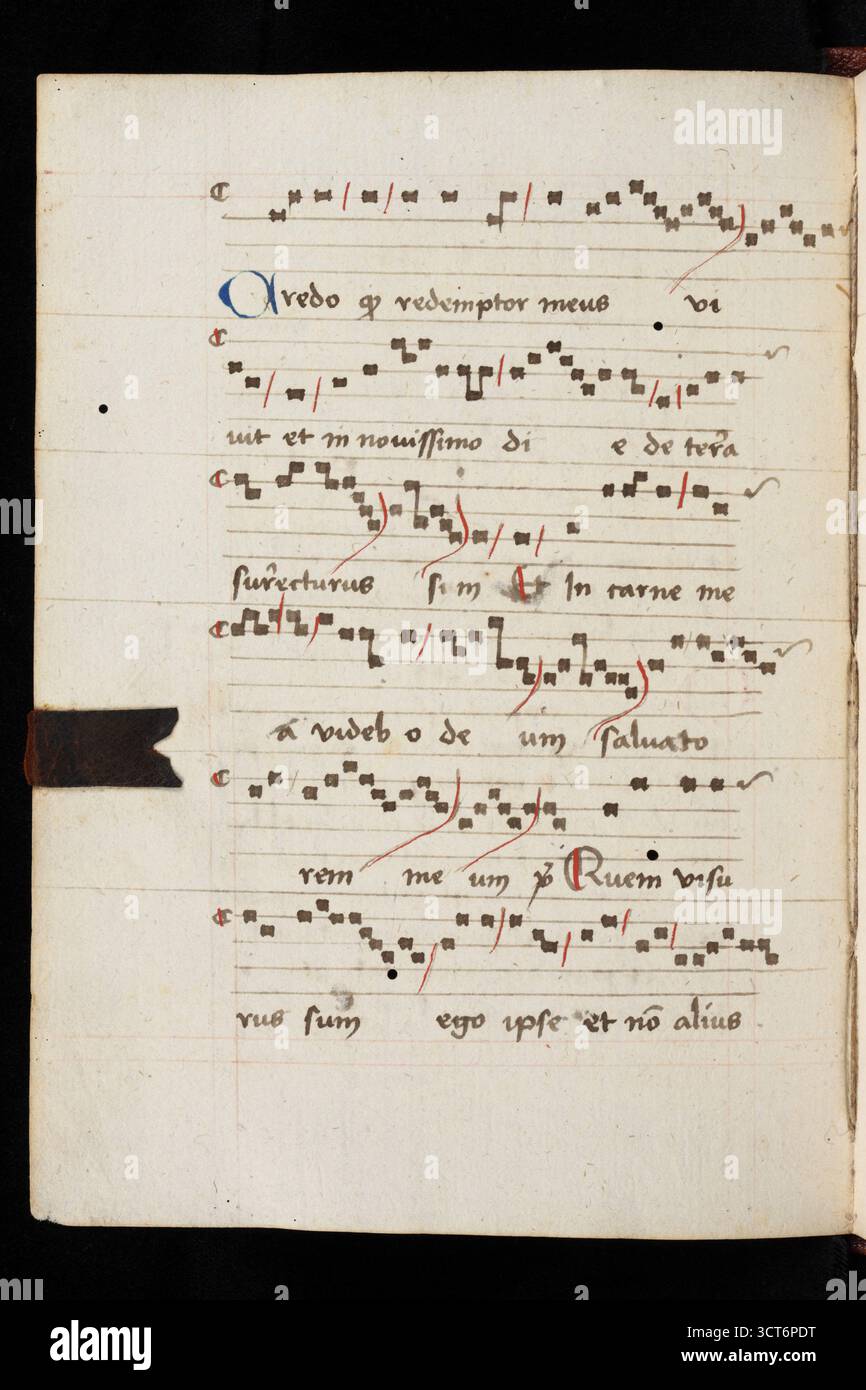 Credo ꝙ redemptor meus vi
vit et in novissimo di e de ter̃a
sur̃ecturus sum Et In carne me
a videb o de um salvato
rem me um ꝟ Quem visu
rus sum ego ipse et nō alius
alamy
Image ID: 3CT6PDT
www.alamy.com